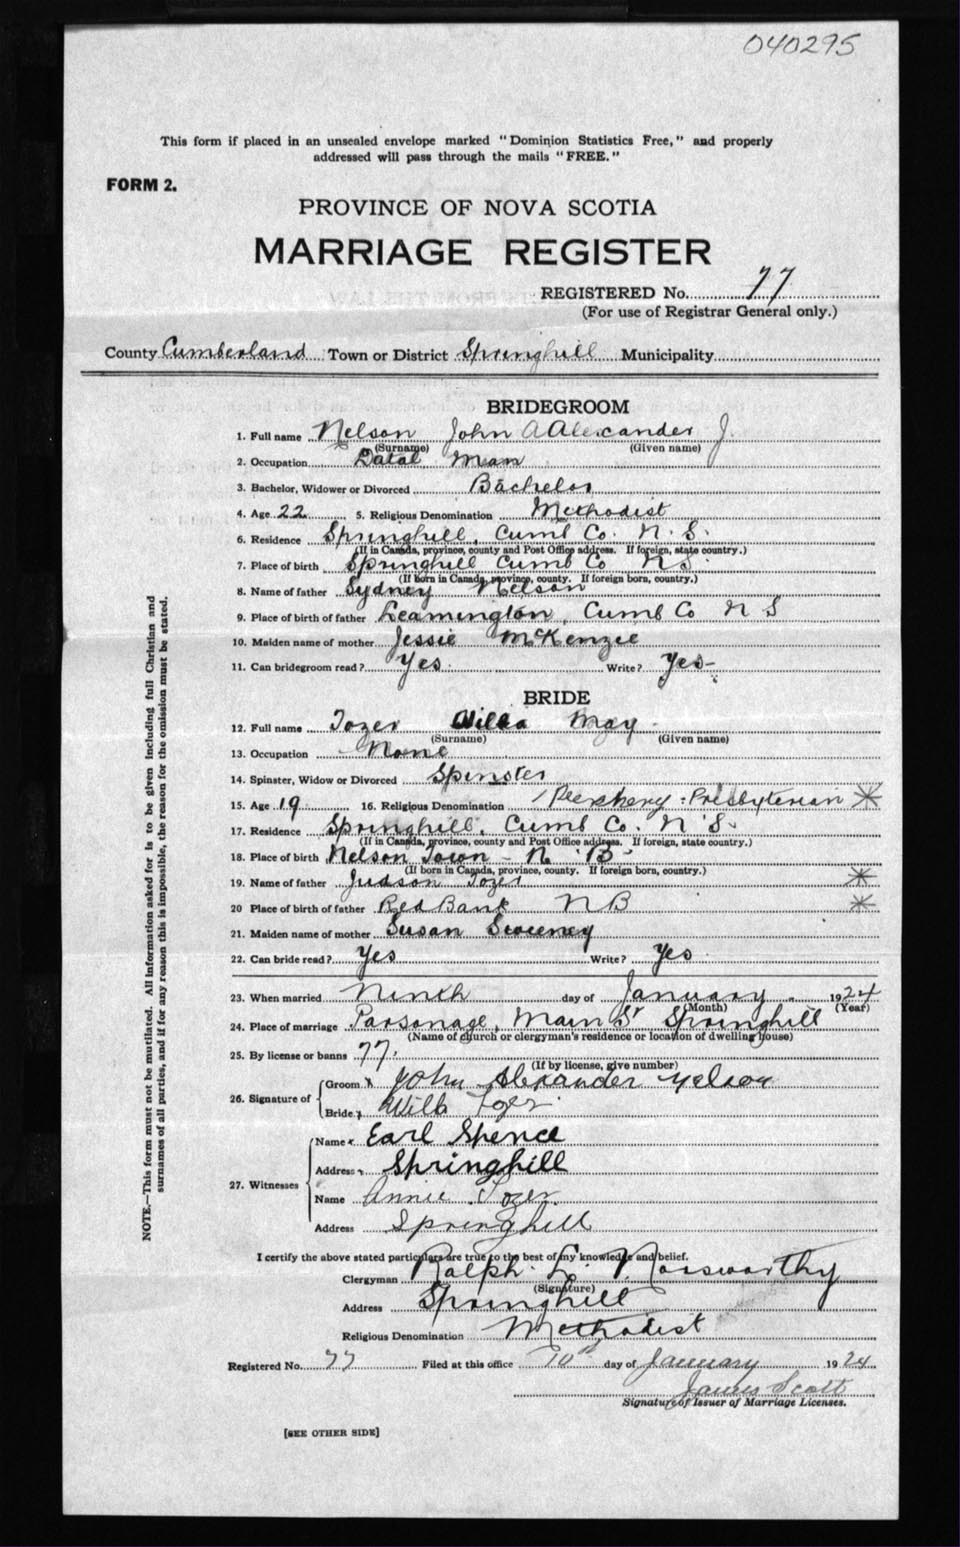 040295
This form if placed in an unsealed envelope marked "Dominion Statistics Free," and properly
addressed will pass through the mails "FREE."
FORM 2.
PROVINCE OF NOVA SCOTIA
MARRIAGE REGISTER
REGISTERED No. 77
(For use of Registrar General only.)
County Cumberland Town or District Springhill Municipality
BRIDEGROOM
1. Full name Nelson John A Alexander J.
(Surname) (Given name)
2. Occupation Datal Man
3. Bachelor, Widower or Divorced Bachelor
4. Age 22 5. Religious Denomination Methodist
6. Residence Springhill, Cumb Co. N. S.
(If in Canada, province, county and Post Office address. If foreign, state country.)
7. Place of birth Springhill Cumb Co N S.
(If born in Canada, province, county. If foreign born, country.)
8. Name of father Sydney Nelson
9. Place of birth of father Leamington, Cumb Co N S
10. Maiden name of mother Jessie McKenzie
11. Can bridegroom read? Yes. Write? Yes-
BRIDE
12. Full name Tozer Willa May
(Surname) (Given name)
13. Occupation None
14. Spinster, Widow or Divorced Spinster
15. Age 19 16. Religious Denomination Presbyterian
17. Residence Springhill, Cumb Co. N. S.
(If in Canada, province, county and Post Office address. If foreign, state country.)
18. Place of birth Nelson Town - N. B-
(If born in Canada, province, county. If foreign born, country.)
19. Name of father Judson Tozer
20 Place of birth of father Red Bank N B
21. Maiden name of mother Susan Sweeney
22. Can bride read? Yes Write? Yes
23. When married Ninth day of January 1924
(Month) (Year)
24. Place of marriage Parsonage, Main St Springhill
(Name of church or clergyman's residence or location of dwelling house)
25. By license or banns 77.
(If by license, give number)
26. Signature of Groom John Alexander Nelson
Bride Willa Tozer
27. Witnesses Name Earl Spence
Address Springhill
Name Annie Tozer
Address Springhill
I certify the above stated particulars are true to the best of my knowledge and belief.
Clergyman Ralph L. Norsworthy
(Signature)
Address Springhill
Religious Denomination Methodist
Registered No. 77 Filed at this office 10th day of January 1924
James Scott
Signature of Issuer of Marriage Licenses.
[SEE OTHER SIDE]
NOTE.—This form must not be mutilated. All information asked for is to be given including full Christian and
surnames of all parties, and if for any reason this is impossible, the reason for the omission must be stated.